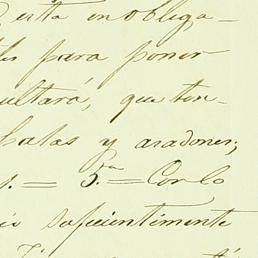 esta en obliga-
para poner
ultará, que ten-
batas y azadones;
s. = 5.ª = Con lo
suficientimente